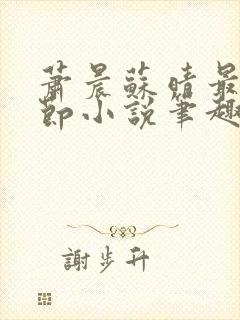 蕭晨蘇晴最
節小說筆趣
謝步升